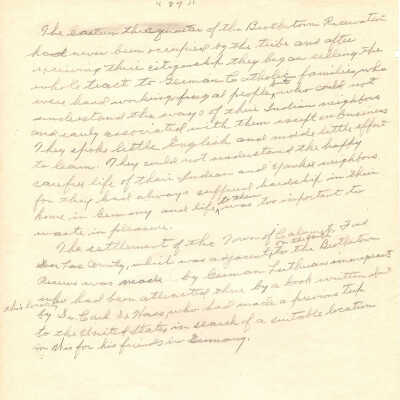 The eastern three quarter of the Brothertown Reservation
had never been occupied by the tribe and after
receiving their citizenship they began selling the
whole tract to German Catholic families, who
were hard working frugal people, who could not
understand the ways of their Indian neighbors
and rarely associated with them except in business
They spoke little English and made little effort
to learn. They could not understand the happy
carefree life of their Indian and Yankee neighbors
for they had always suffered hardship in their
home in Germany and life to them was too important to
waste in pleasure.
The settlement of the Town of Calumet, Fond
du Lac County, which was adjacent to the Brothertown
Reserve was made by German Lutheran immigrants
who had been attracted there by a book written
by Dr. Carl de Haas, who had made a previous trip
to the United States in search of a suitable location
in Wis for his friends in Germany.